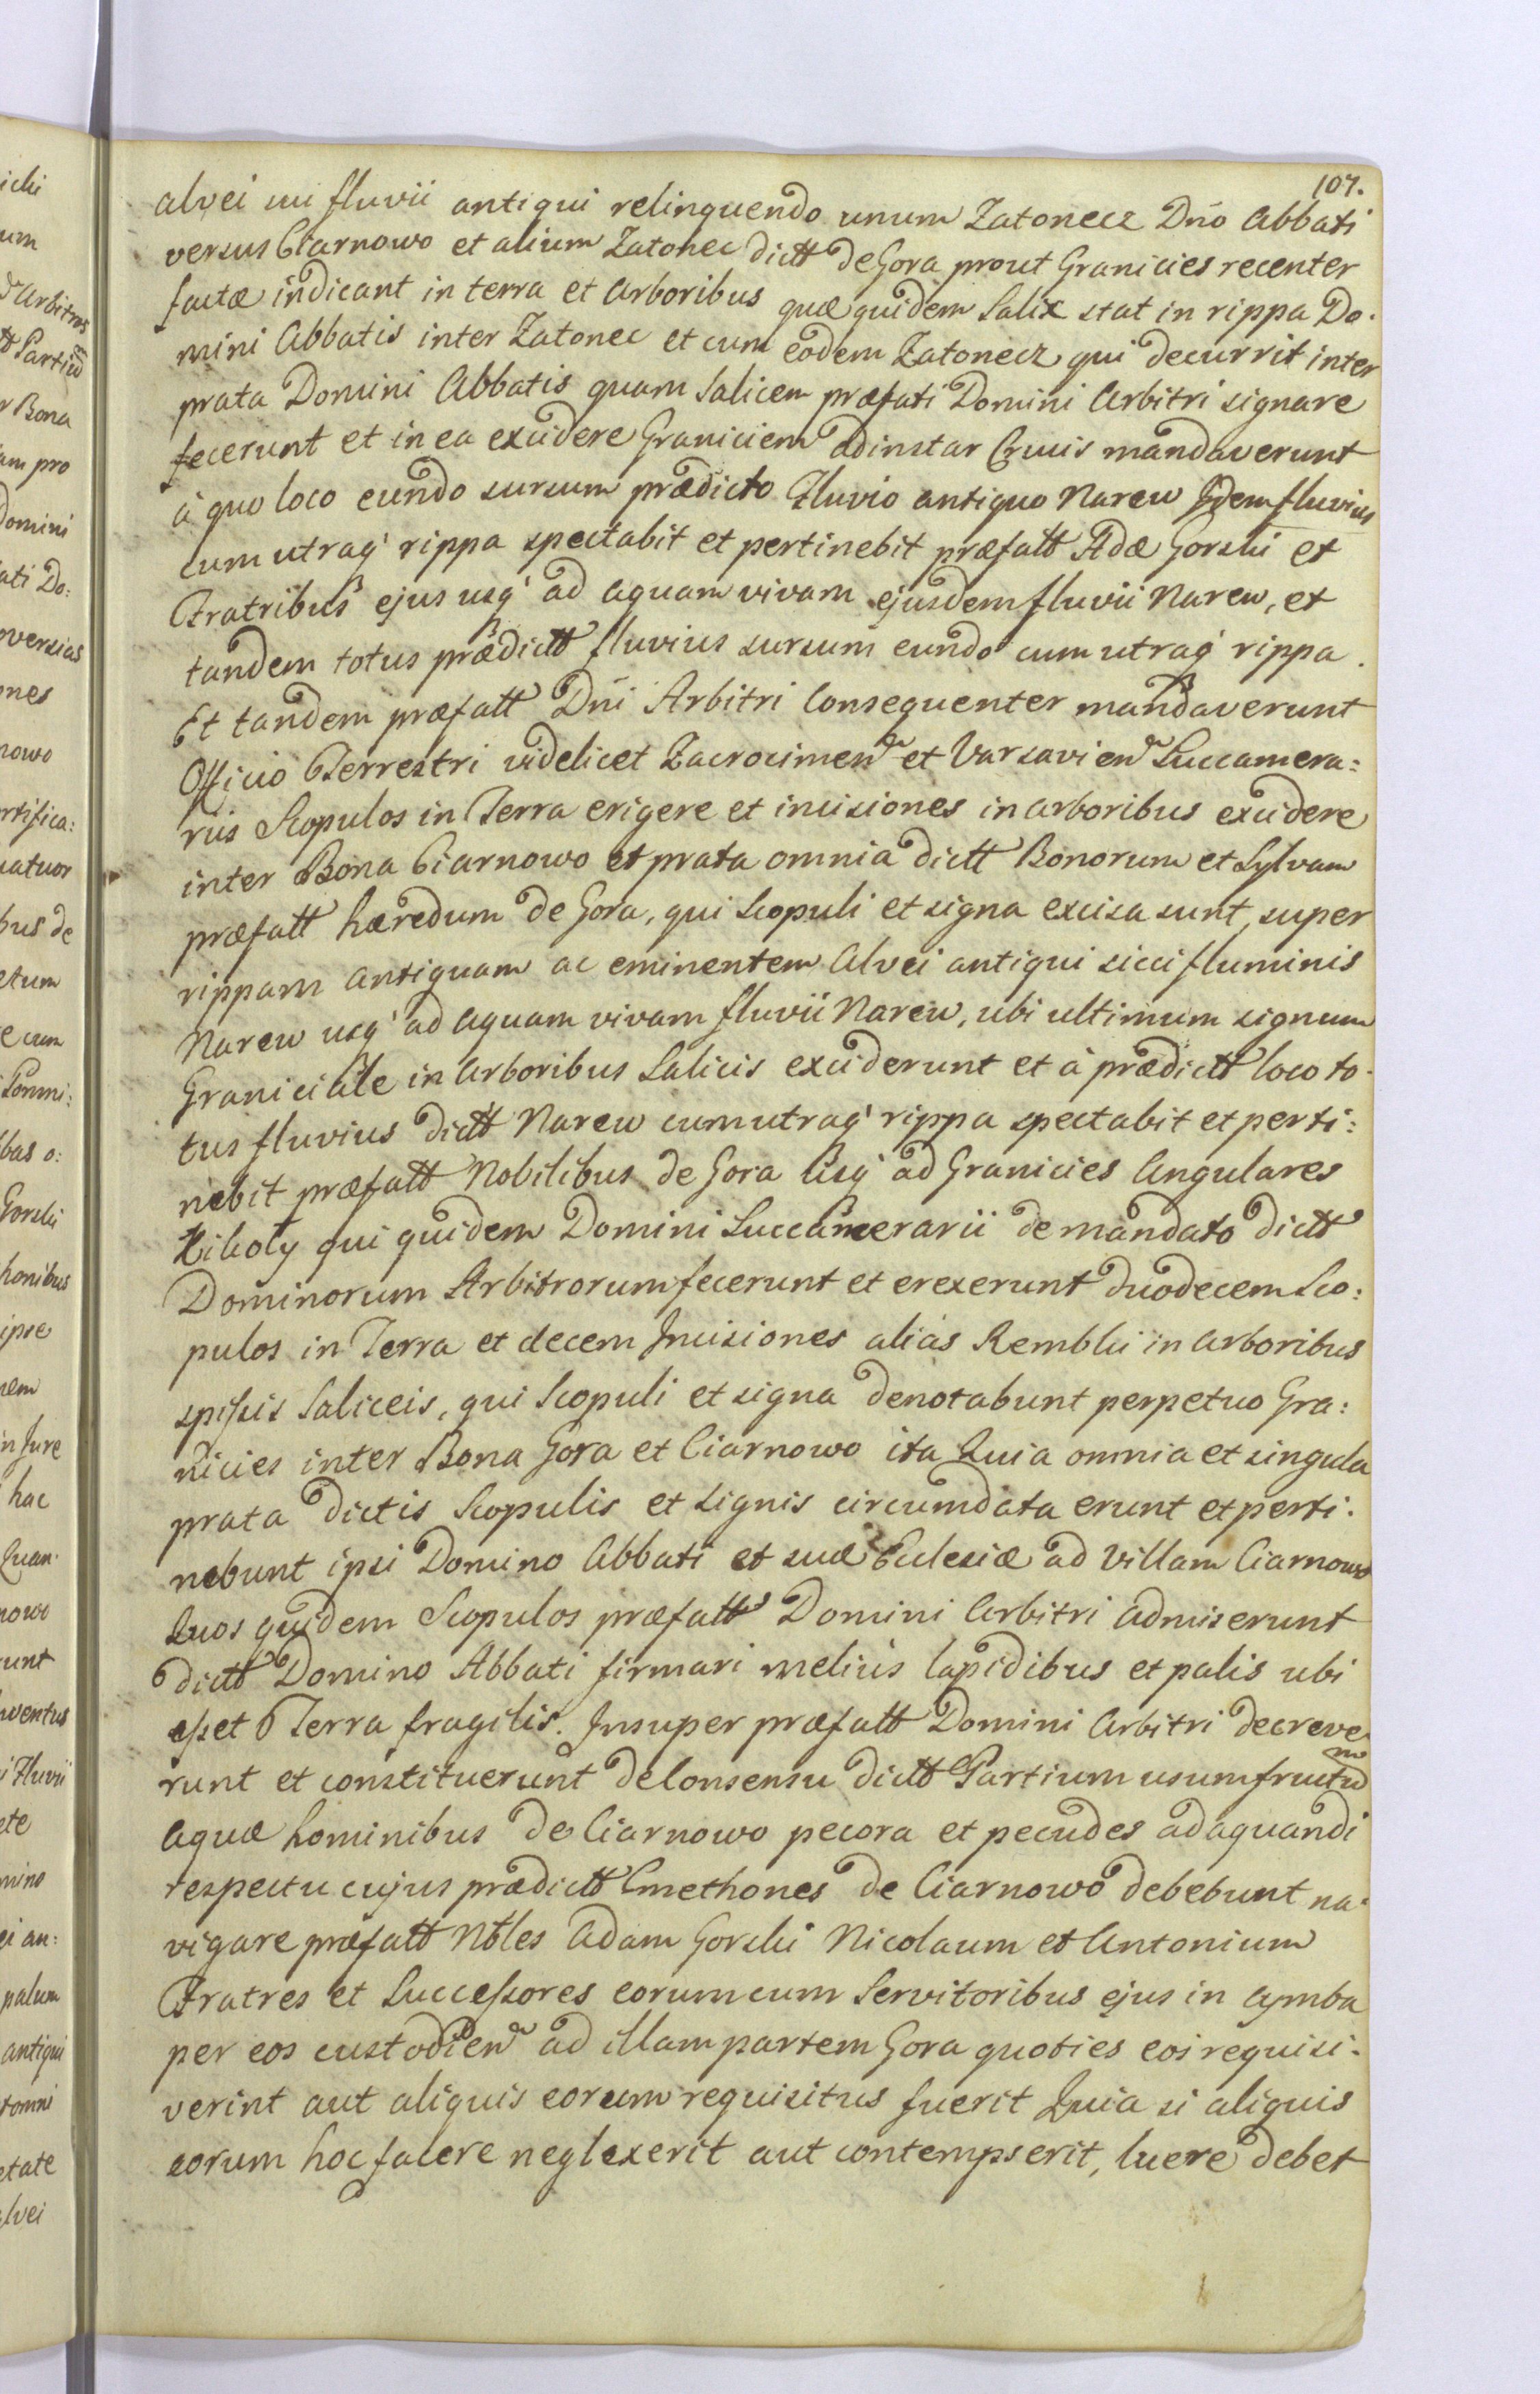 107.
alvei seu fluvii antiqui relinquendo unum Zatonecz Dño Abbati
versus Czarnowo et alium Zatonec dictt de Gora prout Granicies recenter
factæ indicant in terra et Arboribus quæ quidem Salix stat in rippa Do.
mini Abbatis inter Zatonec et cum eodem Zatonecz qui decurrit inter
prata Domini Abbatis quam Salicem præfati Domini Arbitri signare
fecerunt et in ea excidere Graniciem ad instar Crucis mandaverunt
à quo loco eundo sursum prædicto Fluvio antiquo Narew Idem fluvius
cum utraq' rippa spectabit et pertinebit præfatt Adæ Gorski et
Fratribus ejus usq' ad aquam vivam ejusdem fluvii Narew, et
tandem totus prædictt fluvius sursum eundo cum utraq' rippa.
Et tandem præfatt Dñi Arbitri Consequenter mandaverunt
Officio Terrestri videlicet Zacrocimen et Varsavien Succamera:
riis Scopulos in Terra erigere et incisiones in arboribus excidere
inter Bona Ciarnowo et prata omnia dictt Bonorum et Sylvam
præfatt hæredum de Gora, qui Scopuli et signa excisa sunt, super
rippam antiquam ac eminentem Alvei antiqui sicci fluminis
Narew usq' ad aquam vivam fluvii Narew, ubi ultimum signum
Graniciale in Arboribus Salicis exciderunt et à prædictt loco to.
tus fluvius dictt Narew cum utraq' rippa spectabit et perti:
nebit præfatt Nobilibus de Gora Usq' ad Granicies Angulares
qui quidem Domini Succamerarii de mandato dictt
Dominorum Arbitrorum fecerunt et erexerunt duodecem Sco:
pulos in Terra et decem Incisiones alias Rembki in arboribus
spissis Saliceis, qui Scopuli et signa denotabunt perpetuo Gra:
nicies inter Bona Gora et Ciarnowo ita Quia omnia et singula
prata dictis Scopulis et Signis circumdata erunt et perti.
nebunt ipsi Domino Abbati et suæ Ecclesiæ ad Villam Ciarnowo
Quos quidem Scopulos præfatt Domini Arbitri admiserunt
dictt Domino Abbati firmari meliùs lapidibus et palis ubi
esset Terra fragilis. Insuper præfatt Domini Arbitri decreve
runt et constituerunt de Consensu dictt Partium usumfructu m
Aquæ hominibus de Ciarnowo pecora et pecudes adaquandi
respectu cujus prædictt Cmethones de Ciarnowo debebunt na.
vigare præfatt Nbles Adam Gorski Nicolaum et Antonium
Fratres et Successores eorum cum Servitoribus ejus in cymba
per eos custodien ad illam partem Gora quoties eos requisi.
verint aut aliquis eorum requisitus fuerit Quia si aliquis
eorum hoc facere neglexerit aut contempserit, luere debet